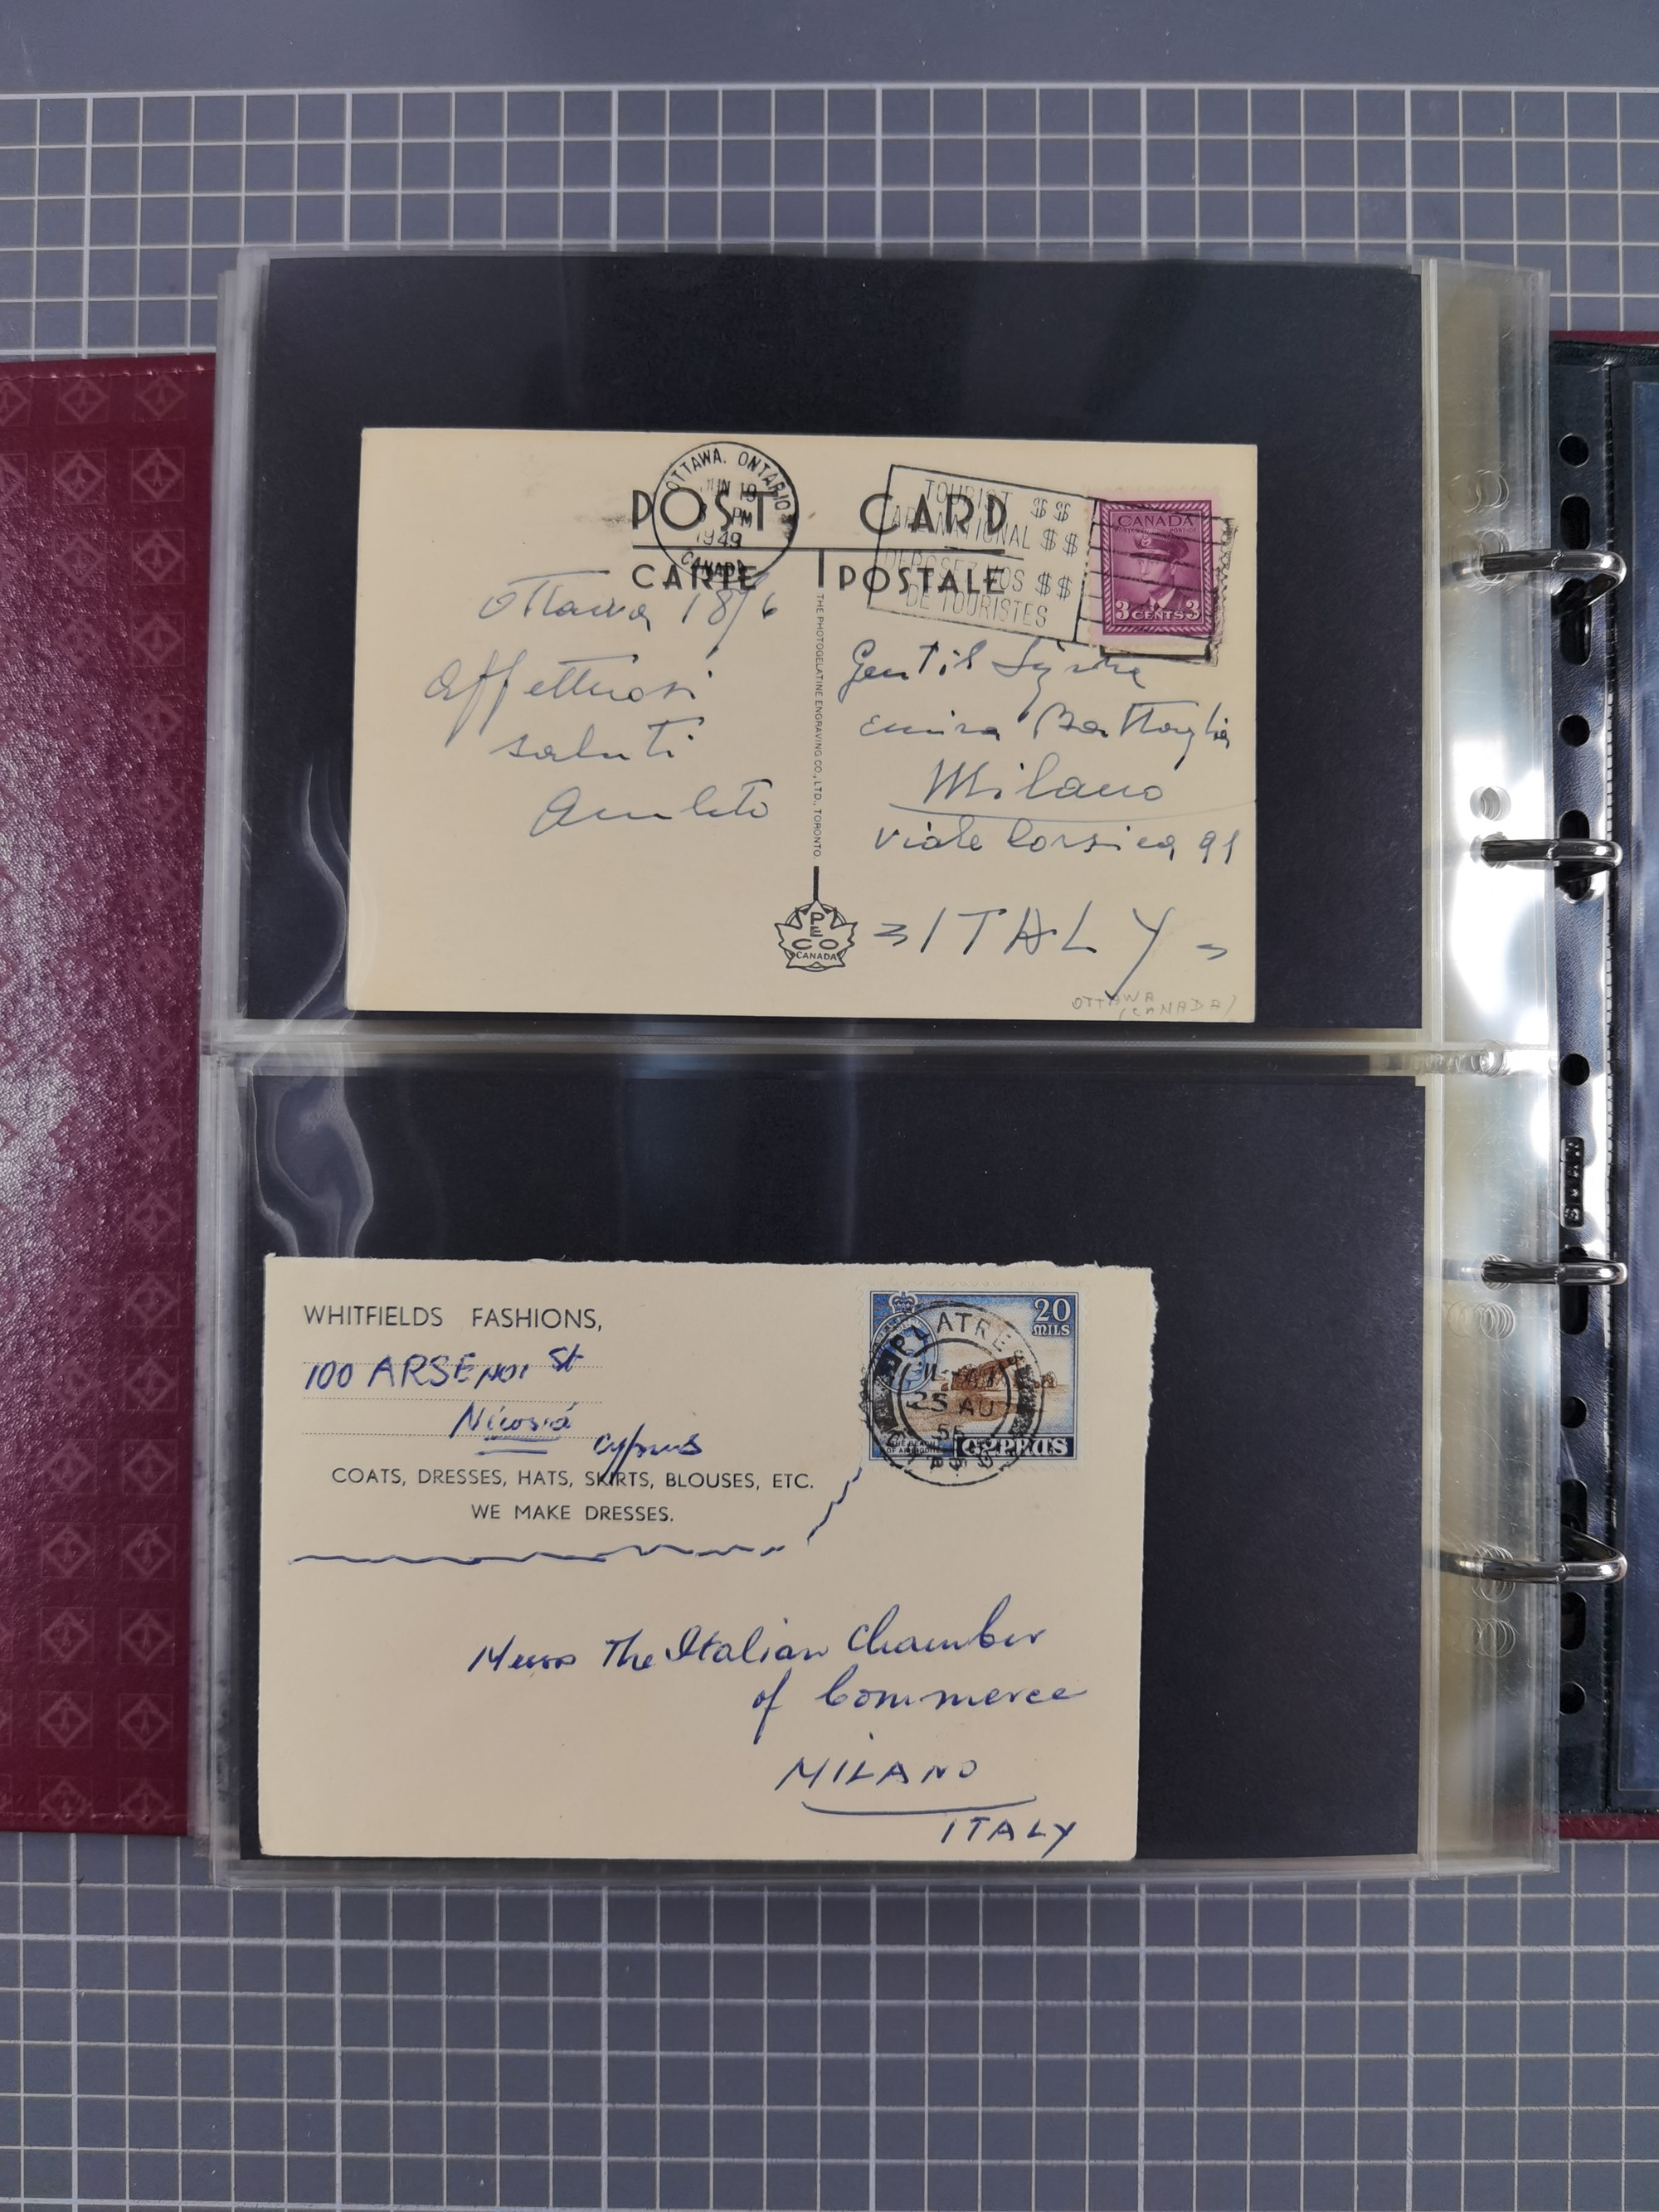 OTTAWA, ONTARIO
JUN 19
PM
1949
CANADA
POST CARD
CARTE POSTALE
TOURIST $$
NATIONAL $$
DEPOSEZ VOS $$
DE TOURISTES
CANADA
3 CENTS 3
Ottawa 18/6
Affettuosi
saluti
Amleto
THE PHOTOGELATINE ENGRAVING CO., LTD., TORONTO
PECO
CANADA
Gentil Sig
Battaglia
Milano
Viale Corsica 91
ITALY
OTTAWA
(CANADA)
WHITFIELDS FASHIONS,
100 ARSENOI St
Nicosia
Cyprus
COATS, DRESSES, HATS, SKIRTS, BLOUSES, ETC.
WE MAKE DRESSES.
20
MILS
PLATRES
25 AU
CYPRUS
CYPRUS
The Italian Chamber
of Commerce
MILANO
ITALY
SAFE